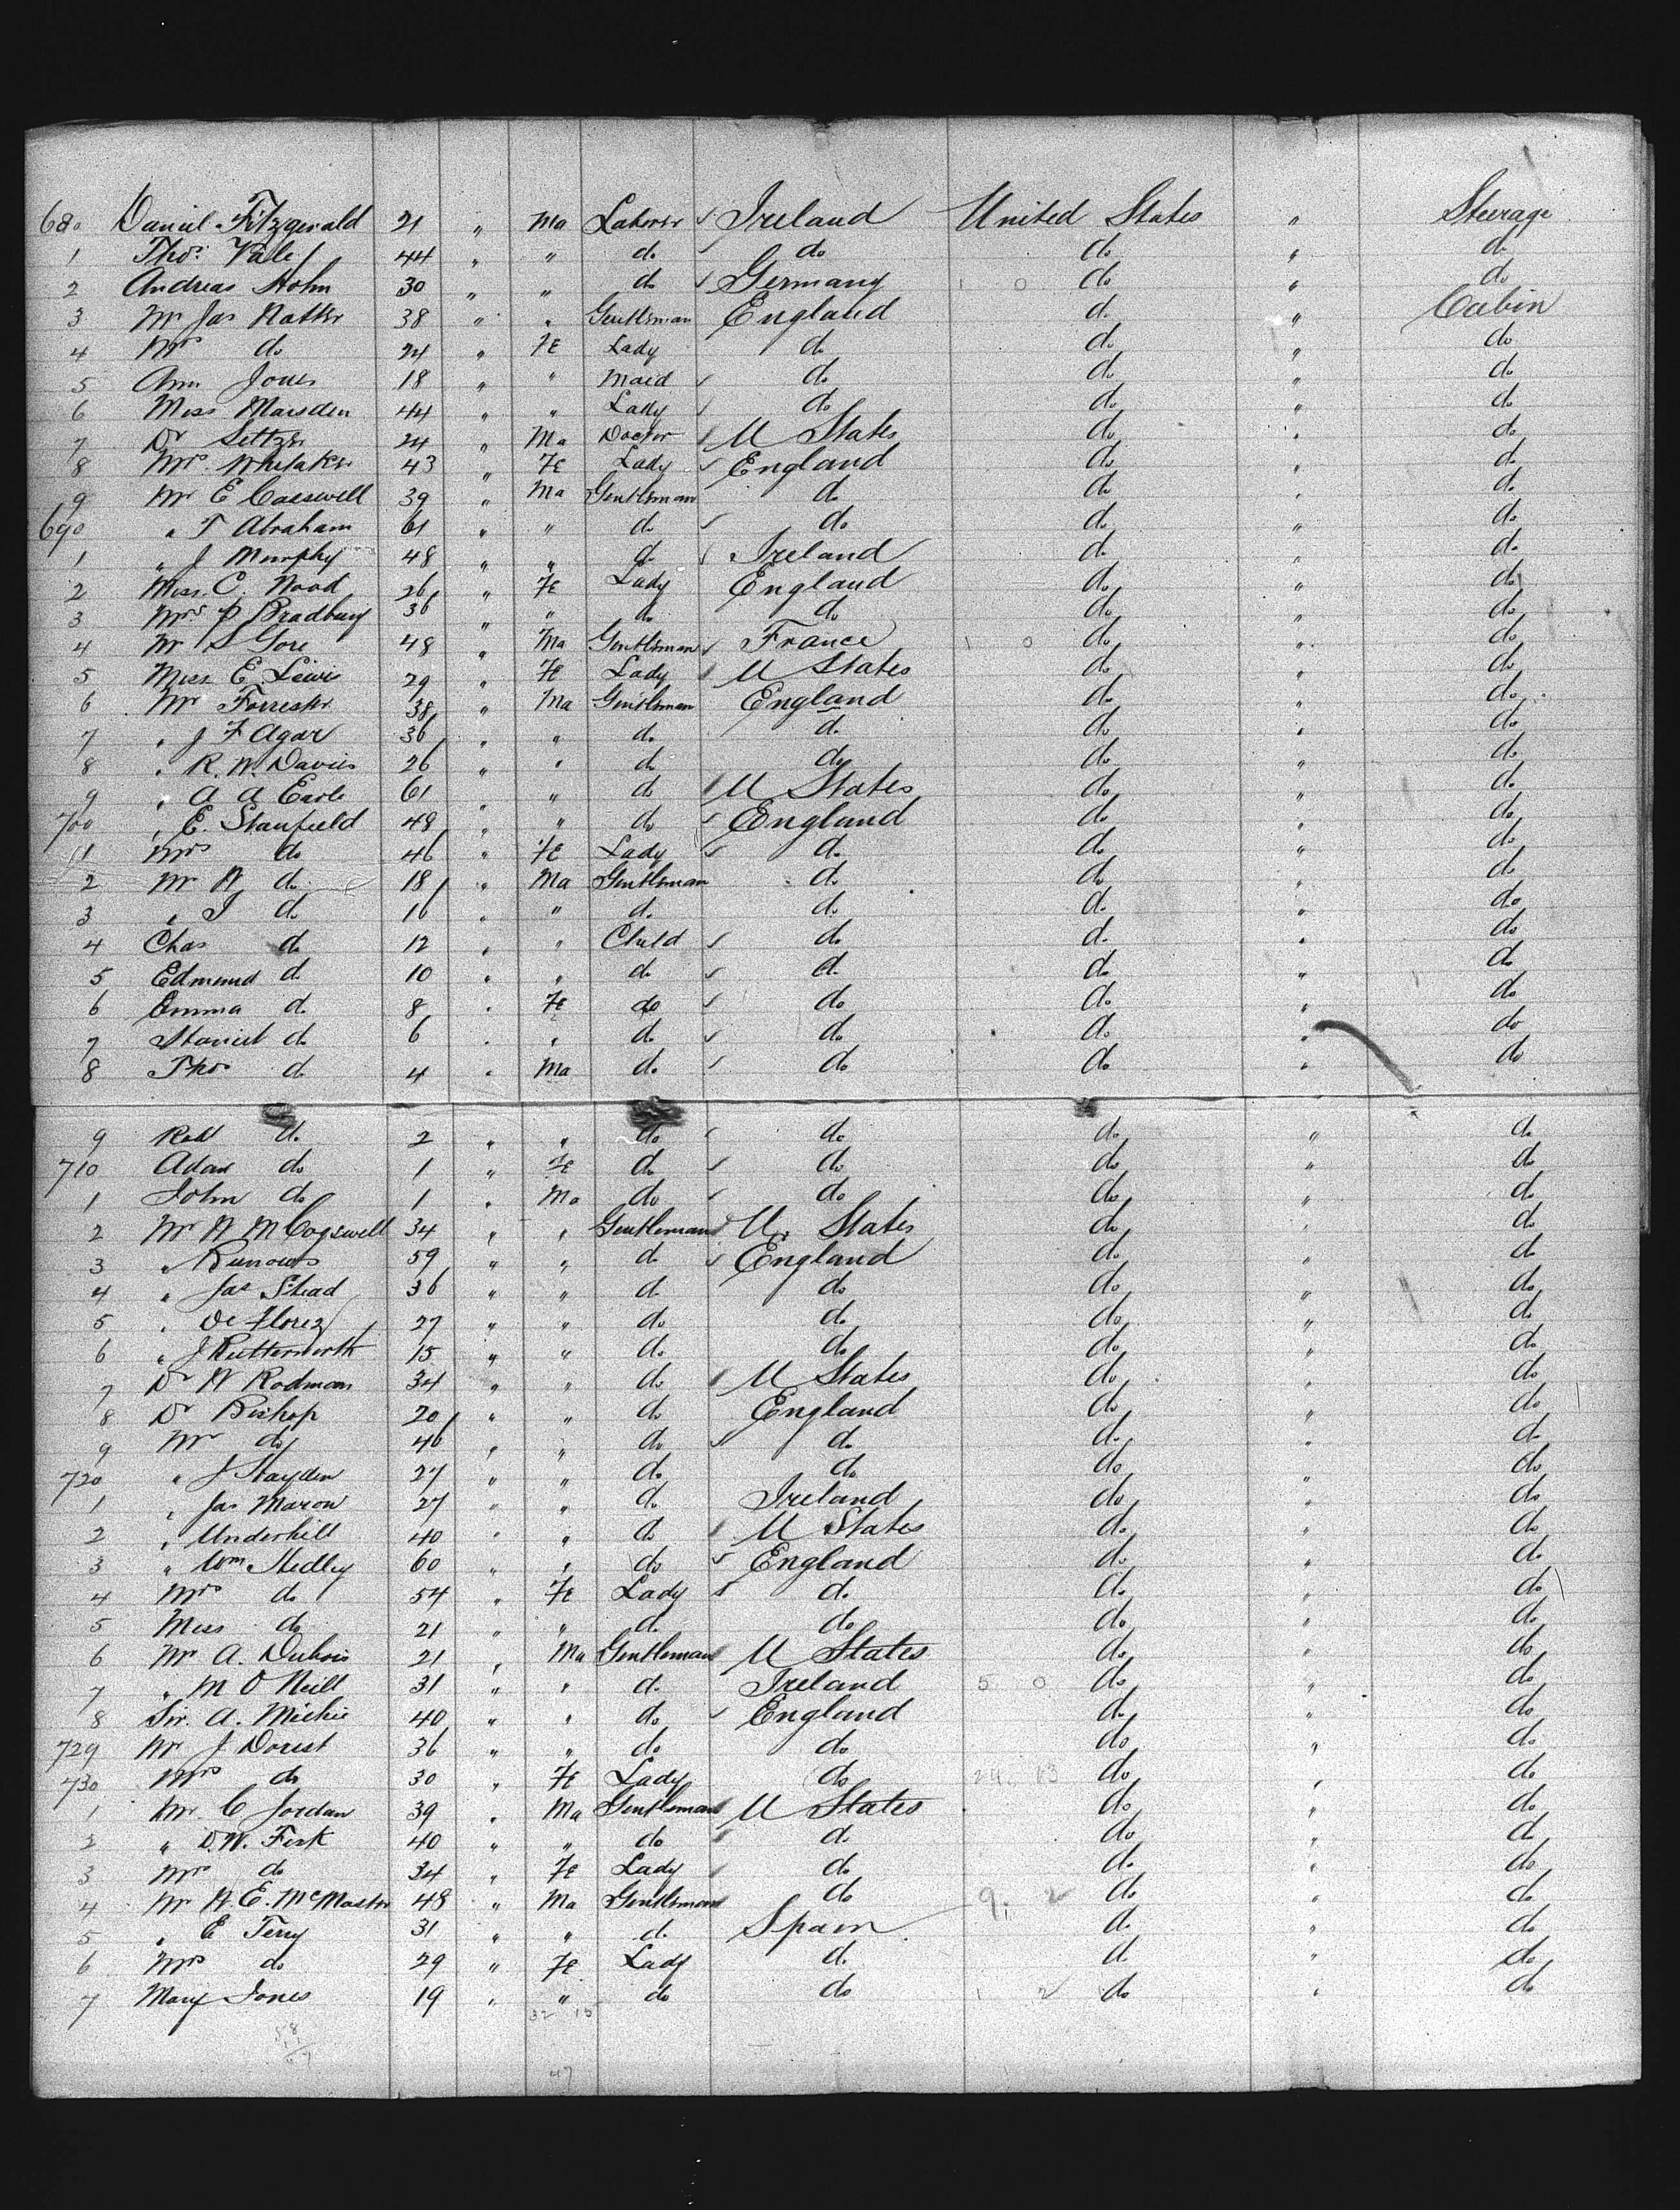 680 Daniel Fitzgerald 21 " Ma Laborer Ireland United States " Steerage
1 Thos. Vale 44 " " do do do " do
2 Andreas Hohn 30 " " do Germany 1 0 do " do
3 Mr Jas Natter 38 " " Gentleman England do " Cabin
4 Mrs do 24 " Fe Lady do do " do
5 Ann Jones 18 " " Maid do do " do
6 Miss Marsden 44 " " Lady do do " do
7 Dr Seltzer 24 " Ma Doctor U States do " do
8 Mrs. Whitaker 43 " Fe Lady England do " do
9 Mr E Casswell 39 " Ma Gentleman do do " do
690 " T Abraham 61 " " do do do " do
1 " J Murphy 48 " " do Ireland do " do
2 Miss. C. Wood 26 " Fe Lady England do " do
3 Mrs P Bradbury 36 " " do do do " do
4 Mr S Gore 48 " Ma Gentleman France 1 0 do " do
5 Miss E. Lewis 29 " Fe Lady U States do " do
6 Mr Forrester 38 " Ma Gentleman England do " do
7 " J F Agar 36 " " do do do " do
8 " R. W. Davies 26 " " do do do " do
9 " A A Earle 61 " " do U States do " do
700 " E. Stanfield 48 " " do England do " do
1 Mrs do 46 " Fe Lady do do " do
2 Mr W do 18 " Ma Gentleman do do " do
3 " J do 16 " " do do do " do
4 Chas do 12 " " Child do do " do
5 Edmund do 10 " " do do do " do
6 Emma do 8 " Fe do do do " do
7 do 6 " " do do do " do
8 Thos do 4 " Ma do do do " do
9 Robt do 2 " " do do do " do
710 do 1 " Fe do do do " do
1 John do 1 " Ma do do do " do
2 Mr W M Cogswell 34 " " Gentleman U. States do " do
3 " 59 " " do England do " do
4 " Jas Stead 36 " " do do do " do
5 " De Florez 27 " " do do do " do
6 " J Butterworth 15 " " do do do " do
7 Dr W Rodman 34 " " do U States do " do
8 Dr Bishop 20 " " do England do " do
9 Mr do 46 " " do do do " do
720 " J Hayden 27 " " do do do " do
1 " Jas Maron 27 " " do Ireland do " do
2 " Underhill 40 " " do U States do " do
3 " Wm Hedley 60 " " do England do " do
4 Mrs do 54 " Fe Lady do do " do
5 Miss do 21 " " do do do " do
6 Mr A. Dubois 21 " Ma Gentleman U States do " do
7 " M O Neill 31 " " do Ireland 5 0 do " do
8 Sir. A. Michie 40 " " do England do " do
729 Mr J Dorest 36 " " do do do " do
730 Mrs do 30 " Fe Lady do 24 13 do " do
1 Mr. C Jordan 39 " Ma Gentleman U States do " do
2 " D. W. Fisk 40 " " do do do " do
3 Mrs do 34 " Fe Lady do do " do
4 Mr W. E. McMaster 48 " Ma Gentleman do 9 2 do " do
5 " E Terry 31 " " do Spain do " do
6 Mrs do 29 " Fe Lady do do " do
7 Mary Jones 19 " " do do 1 2 do " do
32 15
47